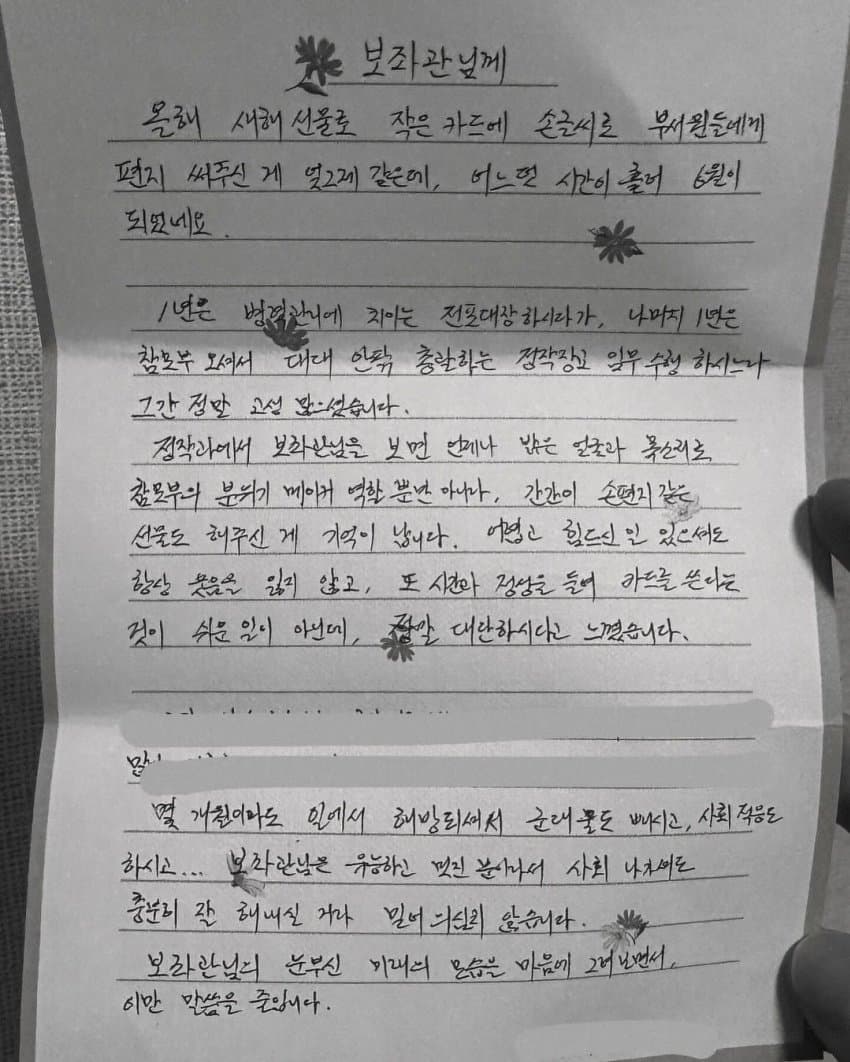 보좌관님께
올해 새해 선물로 작은 카드에 손글씨로 부서원들에게
편지 써주신 게 엊그제 같은데, 어느덧 시간이 흘러 6월이
되었네요.
1년은 병력관리에 치이는 전포대장하시다가, 나머지 1년은
참모부 오셔서 대대 안팎 총괄하는 정작장교 임무 수행 하시느라
그간 정말 고생 많으셨습니다.
정작과에서 보좌관님을 보면 언제나 밝은 얼굴과 목소리로
참모부의 분위기 메이커 역할 뿐만 아니라, 간간이 손편지 같은
선물도 해주신 게 기억이 납니다. 어렵고 힘드신 일 있으셔도
항상 웃음을 잃지 않고, 또 시간과 정성을 들여 카드를 쓴다는
것이 쉬운 일이 아닌데, 정말 대단하시다고 느꼈습니다.
몇 개월이라도 일에서 해방되셔서 군대 물도 빼시고, 사회 적응도
하시고... 보좌관님은 유능하고 멋진 분이라서 사회 나가셔도
충분히 잘 해내실 거라 믿어 의심치 않습니다.
보좌관님의 눈부신 미래의 모습을 마음에 그려보면서,
이만 말씀을 줄입니다.